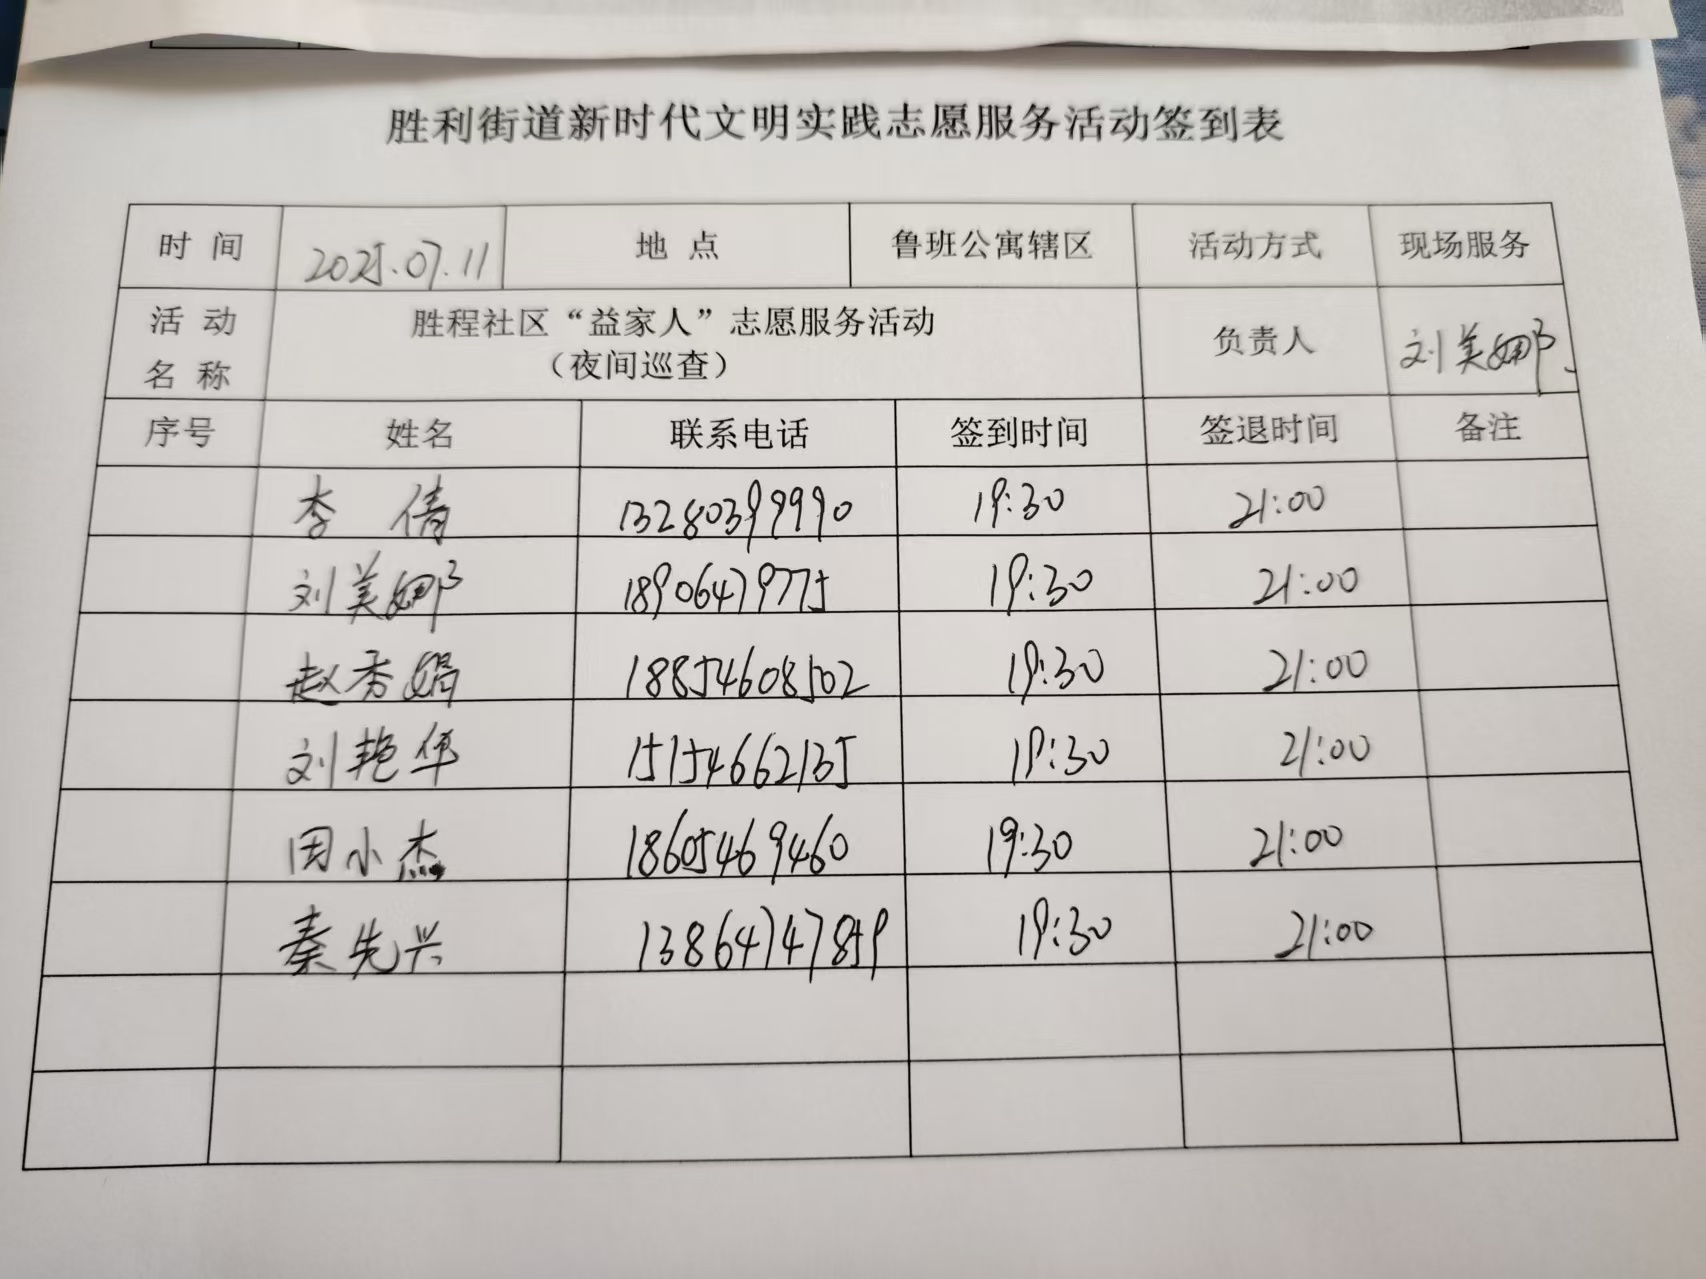 胜利街道新时代文明实践志愿服务活动签到表
时间 2025.07.11 地点 鲁班公寓辖区 活动方式 现场服务
活动名称 胜程社区“益家人”志愿服务活动
（夜间巡查） 负责人 刘美娜
序号 姓名 联系电话 签到时间 签退时间 备注
李倩 13280399990 19:30 21:00
刘美娜 18906479775 19:30 21:00
赵秀娟 18854608502 19:30 21:00
刘艳华 15154662135 19:30 21:00
周小杰 18605469460 19:30 21:00
秦先兴 13864747859 19:30 21:00